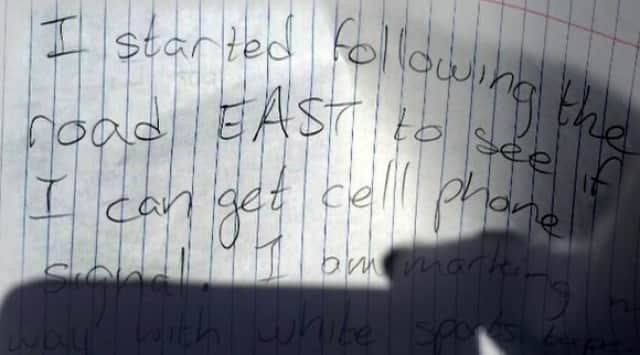 I started following the
road EAST to see if
I can get cell phone
signal. I am marking
way with white sports